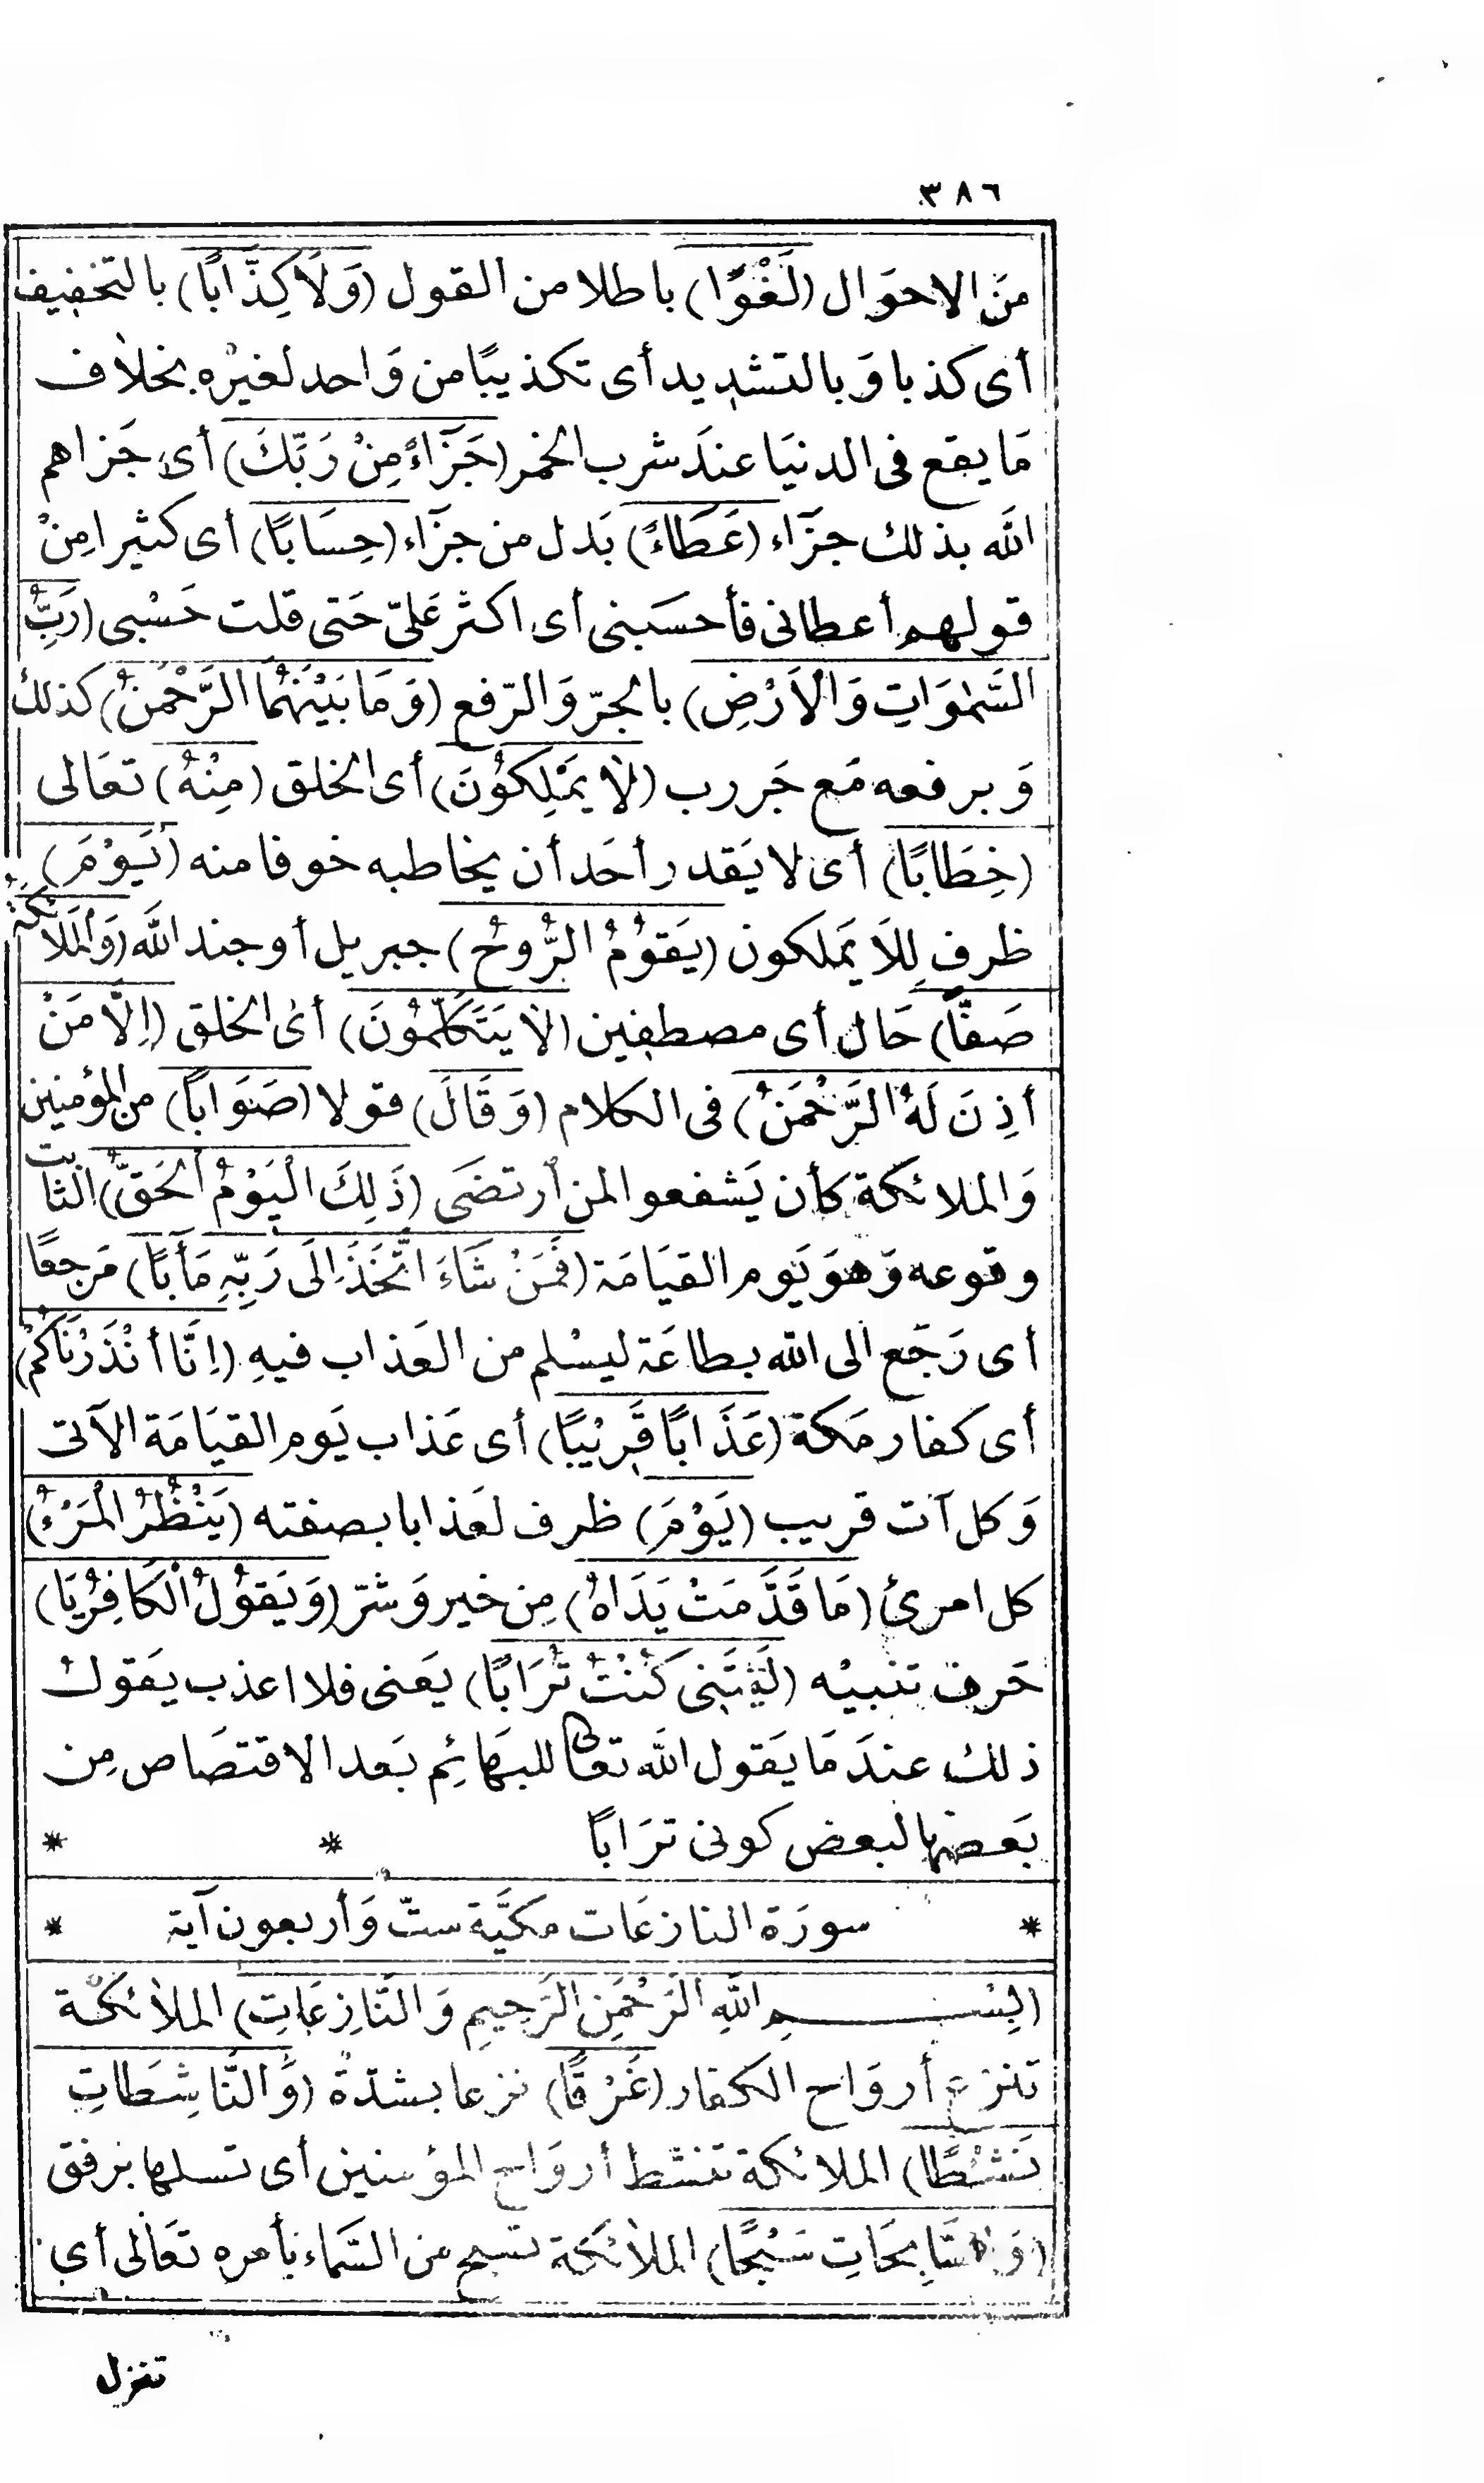 ٣٨٦
منَ الاحوَال (لَغْوًا) باطلا من القول (وَلَا كِذَّابًا) بالتخفيف
أى كذبا وَبالتشديد أى تكذيبًا من وَاحد لغيْره بخلاف
مَا يقع فى الدنيَا عندَ شرب الخمر (جَزَآءً مِنْ رَبِّكَ) أى جَزاهم
اللَه بذلك جزَآء (عَطَاءً) بَدل من جزَآء (حِسَابًا) أى كثيرا مِنْ
قولهم أعطانى فأحسَبنى أى اكثر عَلىّ حَتى قلت حَسْبى (رَبِّ
السَّمٰوَاتِ وَالْاَرْضِ) بالجرّ وَالرّفع (وَمَا بَيْنَهُمَا الرَّحْمٰنُ) كذلك
وَبرفعه مَع جَر رب (لَا يَمْلِكُوْنَ) أى الخلق (مِنْهُ) تعَالى
(خِطَابًا) أى لا يَقدر أحَد أن يخاطبه خوفا منه (يَوْمَ)
ظرف لِلَا يَملكون (يَقوْمُ الرُّوحُ) جبريل أو جند اللَّه (وَالْمَلَائكَةُ
صَفًّا) حَال أى مصطفين (لَا يَتَكَلَّمُوْنَ) أى الخلق (إِلَّا مَنْ
أذِنَ لَهُ الرَّحْمَنُ) فى الكلام (وَقَالَ) قولا (صَوَابًا) من المؤمنين
وَالملائكة كأن يَشفعوا لمن أرتضَى (ذَلِكَ الْيَوْمُ الْحَقُّ) الثابت
وقوعه وَهوَ يَوم القيَامَة (فَمَنْ شَاءَ اتَّخَذَ اِلَى رَبِّهِ مَأَبًا) مَرجعًا
أى رَجَع الى الله بطاعَة ليسْلم من العَذاب فيهِ (اِنَّا أنْذَرْنَاكُمْ)
أى كفار مَكة (عَذَابًا قَرِيْبًا) أى عَذاب يَوم القيَامَة الآتى
وَكل آت قريب (يَوْمَ) ظرف لعَذابا بصفته (يَنْظُرُ الْمَرْءُ)
كل امرئ (مَا قَدَّمَتْ يَدَاهُ) مِن خير وَشرّ (وَيَقوْلُ الْكَافِرُ يَا)
حَرف تنبيْه (لَيْتَنِى كُنْتُ تُرَابًا) يعَنى فلا اعذب يَقول
ذلك عندَ مَا يَقول اللَه تعالى للبهَائِم بَعد الاقتصَاص مِن
بَعضها لبعض كونى ترَابًا * *
* سورَة النازعَات مكيَّة ستّ وَأربعون آية *
(بِسْمِ اللَّهِ الرَحْمَنِ الرَحِيمِ وَالنَّازِعَاتِ) الملائكة
تنزع أروَاح الكفار (غَرْقًا) نزعا بشدّة (وَالنَّاشِطَاتِ
نَشْطًا) الملائكة تنشط أروَاح المؤمنين أى تسلها برفق
(وَالسَّابِحَاتِ سَبْحًا) الملائكة تسبح من السَّمَاء بأمره تعَالى أى
تنزل